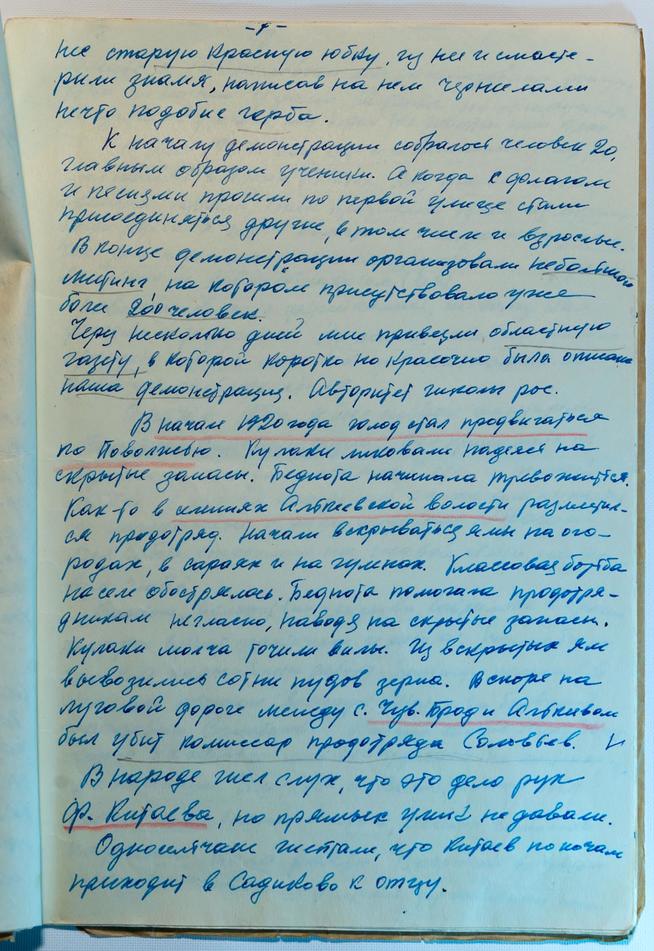 -7-
нее старую красную юбку, из нее и смасте-
рили знамя, написав на нем чернилами
нечто подобие герба.
К началу демонстрации собралось человек 20,
главным образом ученики. А когда с флагом
и песнями прошли по первой улице стали
присоединяться другие, в том числе и взрослые.
В конце демонстрации организовали небольшой
митинг, на котором присутствовало уже
более 200 человек.
Через несколько дней мне привезли областную
газету, в которой коротко но красочно была описана
наша демонстрация. Авторитет школы рос.
В начале 1920 года голод стал продвигаться
по Поволжью. Кулаки ликовали надеясь на
скрытые запасы. Беднота начинала тревожится.
Как-то в селениях Алькеевской волости разместил-
ся продотряд. Начали вскрываться ямы на ого-
родах, в сараях и на гумнах. Классовая борьба
на селе обострялась. Беднота помогала продотря-
дникам негласно, наводя на скрытые запасы.
Кулаки молча точили вилы. Из вскрытых ям
вывозились сотни пудов зерна. Вскоре на
луговой дороге между с. Чув. Брод и Алькеевом
был убит комиссар продотряда Соловьев.
В народе шел слух, что это дело рук
Ф. Китаева, но прямых улик не давали.
Односельчане шептали, что Китаев по ночам
приходит в Садиково к отцу.